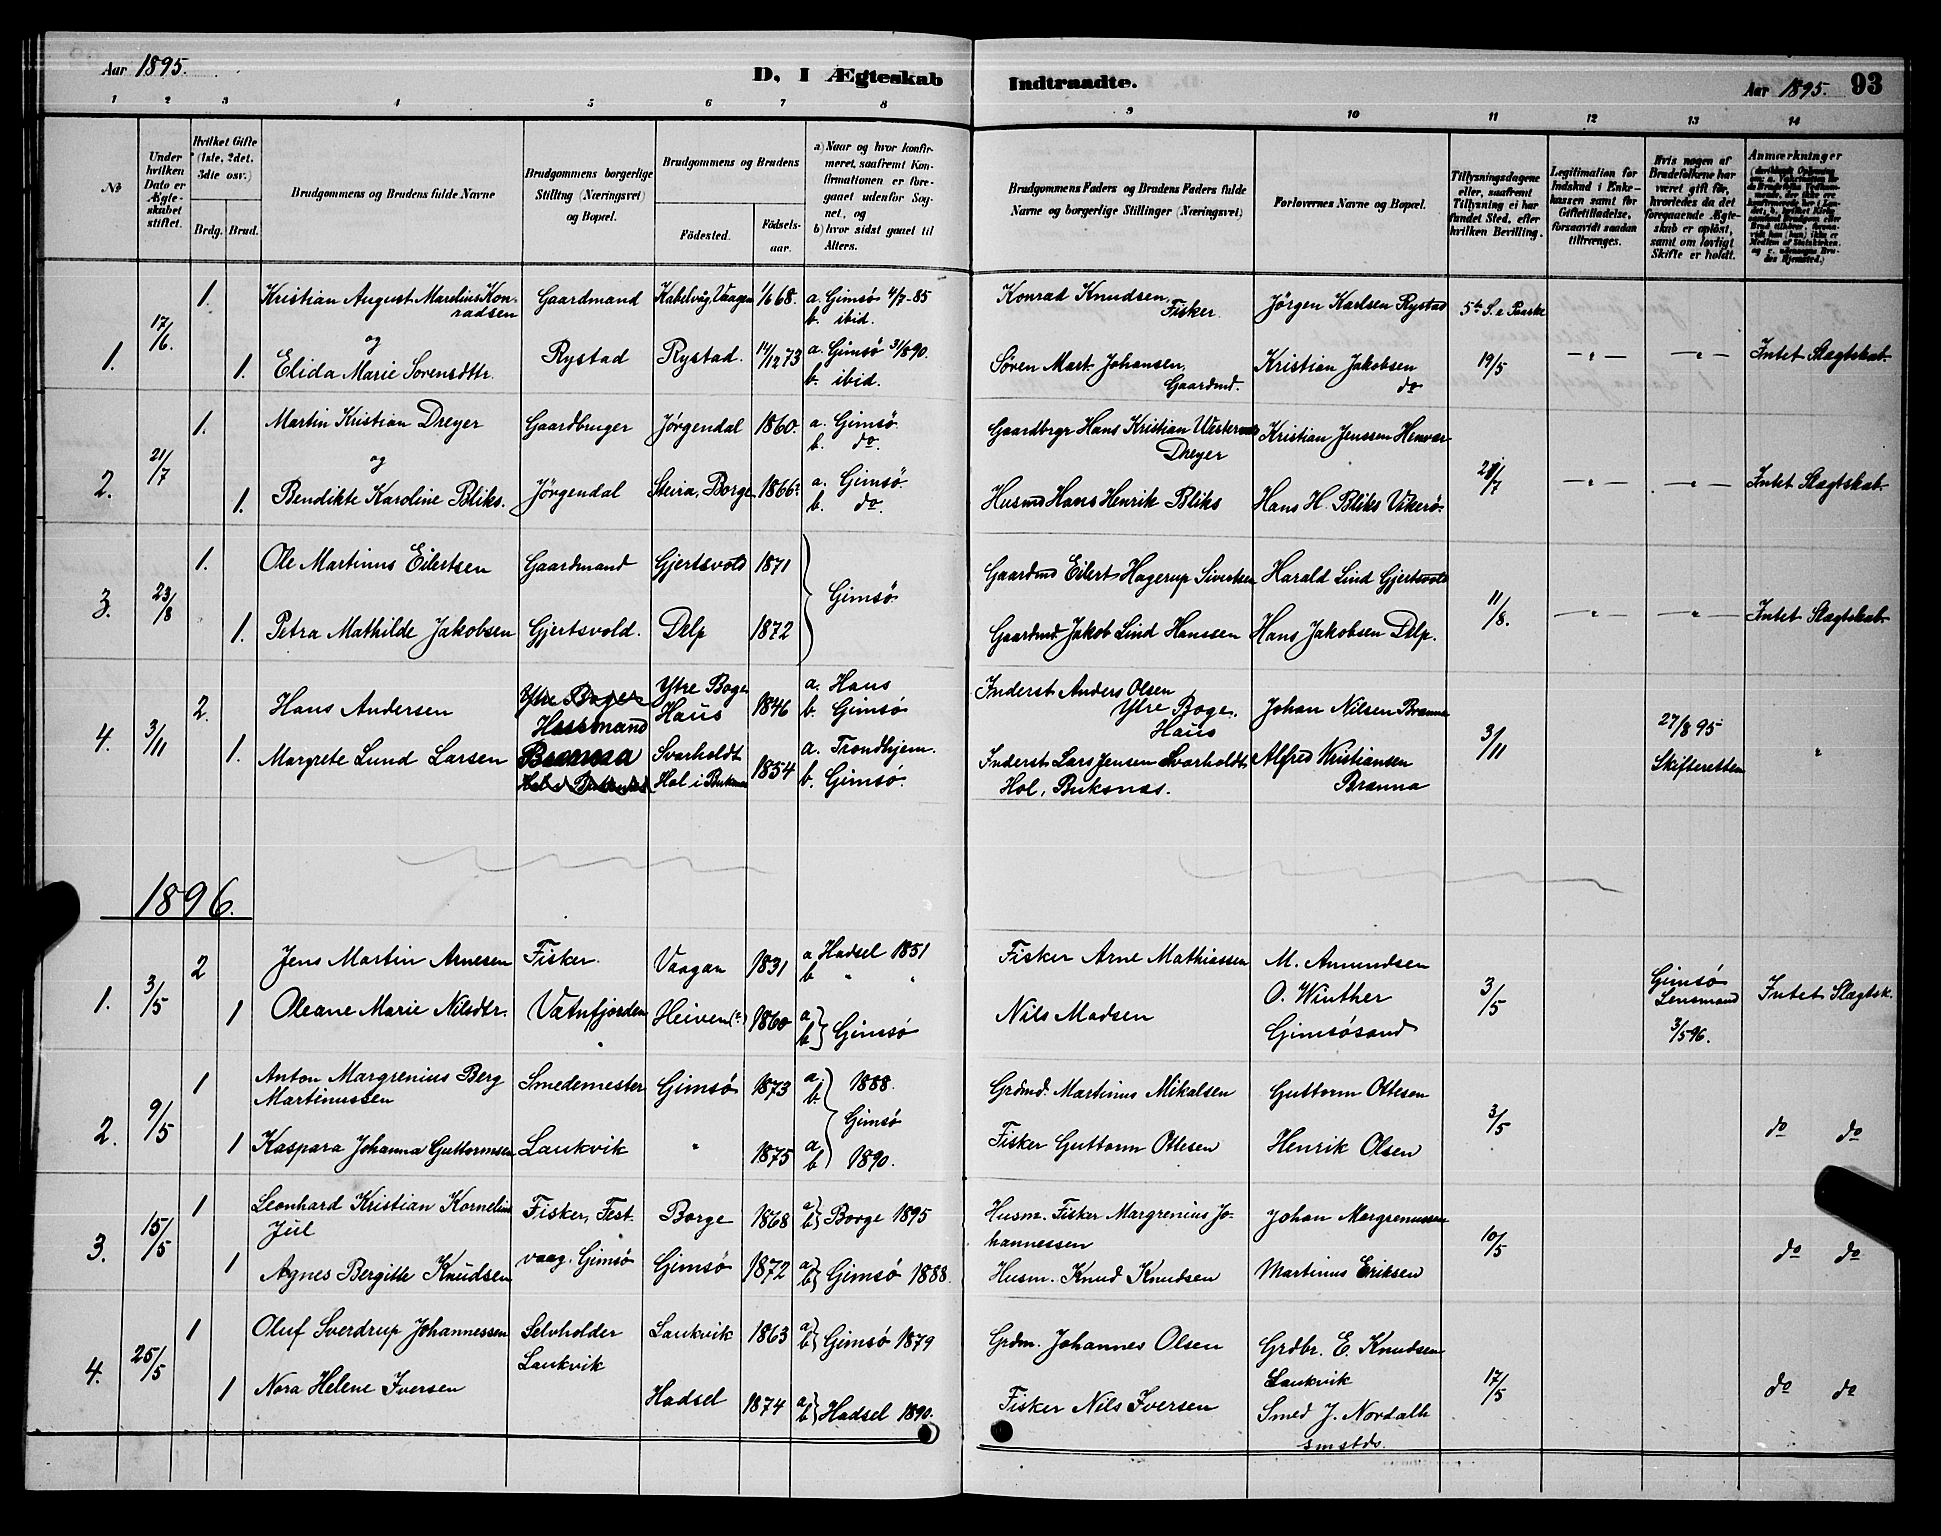 Aar 1895.
D, I Ægteskab
Indtraadte.
Aar 1895. 93
1 2 3 4 5 6 7 8 9 10 11 12 13 14
№
Under hvilken Dato er Ægteskabet stiftet.
Hvilket Gifte (1ste, 2det, 3die osv.)
Brdg. Brud.
Brudgommens og Brudens fulde Navne
Brudgommens borgerlige Stilling (Næringsvei) og Bopæl.
Brudgommens og Brudens
Fødested.
Fødselsaar.
a) Naar og hvor konfirmeret, saafremt Konfirmationen er foregaaet udenfor Sognet, og
b) hvor sidst gaaet til Alters.
Brudgommens Faders og Brudens Faders fulde Navne og borgerlige Stillinger (Næringsvei)
Forlovernes Navne og Bopæl.
Tillysningsdagene eller, saafremt Tillysning ei har fundet Sted, efter hvilken Bevilling.
Legitimation for Indskud i Enkekassen samt for Giftetilladelse, forsaavidt saadan tiltrænges.
Hvis nogen af Brudefolkene har været gift før, hvorledes da det foregaaende Ægteskab er opløst, samt om lovligt Skifte er holdt.
Anmærkninger
1. 17/6. 1. Kristian August Marelius Konradsen Gaardmand Kabelvåg, Vaagen 1/6 68. a. Gimsö 4/7-85 b. ibid. Konrad Knudsen, Fisker. Jörgen Karlsen Rystad 5te S. e Paaske
og
1. Elida Marie Sorensdttr. Rystad Rystad. 14/12 73 a. Gimsö 31/8 90. b. ibid. Søren Mart. Johansen, Gaardmd. Kristian Jakobsen do 19/5 —"— —"— Intet Slagtskab.
2. 21/7 1. Martin Kristian Dreyer Gaardbruger Jørgendal 1860. a. Gimsö. b. do. Gaardbrgr Hans Kristian Dreyer Kristian Jenssen
og
1. Bendikte Karoline Bliks. Jörgendal Steira, Borge 1866. a. Gimsö. b. do. Husmd Hans Henrik Bliks Hans H. Bliks Vikerö. 21/7 —"— —"— Intet Slagtskab.
3. 23/8 1. Ole Martinus Eilertsen Gaardmand Gjertsvold 1871 Gimsö Gaardmd Eilert Hagerup Sivertsen Harald Lind Gjertsvold
1. Petra Mathilde Jakobsen Gjertsvold. Delp 1872 Gaardmd. Jakob Lind Hanssen Hans Jakobsen Delp. 11/8. —"— —"— Intet Slagtskab.
4. 3/11 2. Hans Andersen Ytre Boge Ytre Boge Haus 1846 a. Haus b. Gimsö Inderst Anders Olsen Ytre Boge. Haus Johan Nilsen Branna 3/11 27/8 95 Skifteretten "
1. Margrete Lund Larsen Branna Svarholdt Hol i Buksnæs 1854 a. Trondhjem. b. Gimsö. Inderst Lars Jensen Svarholdt Hol, Buksnas. Alfred Kristiansen Branna
1896.
1. 3/5 2 Jens Martin Arnesen Fisker. Vaagan 1831 a Hadsel 1851 b " " Fisker Arne Mathiassen M. Amundsen
1 Oleane Marie Nilsdtr. Vatnfjorden Heiven 1860 a b Gimsö Nils Madsen O. Winther Gimsösand 3/5 Gimsö Lensmand 3/5 96. Intet Slægtsk.
2. 9/5 1 Anton Margrenius Berg Martinussen Smedemester Gimsö 1873 a b 1888. Grdmd. Martinus Mikalsen Guttorm Ottesen
1 Kaspara Johanna Guttormsen Laukvik " 1875 a b Gimsö 1890. Fisker Guttorm Ottesen Henrik Olsen 3/5 do do
3. 15/5 1 Leonhard Kristian Kornelius Jul Fisker, Festvaag. Gimsö Borge 1868 a b Borge 1895 Husm. Fisker Margrenius Johannessen Johan Margrenussen
1 Agnes Bergitte Knudsen Gimsö 1872 a b Gimsö 1888. Husm. Knud Knudsen Martinus Eriksen 10/5 do do
4. 25/5 1 Oluf Sverdrup Johannessen Selvholder Laukvik Laukvik 1863 a b Gimsö 1879 Grdm. Johannes Olsen Grdbr. E. Knudsen Laukvik
1 Nora Helene Iversen Hadsel 1874 a b Hadsel 1890. Fisker Nils Iversen Smed J. Nordalh smstds. 17/5 do do